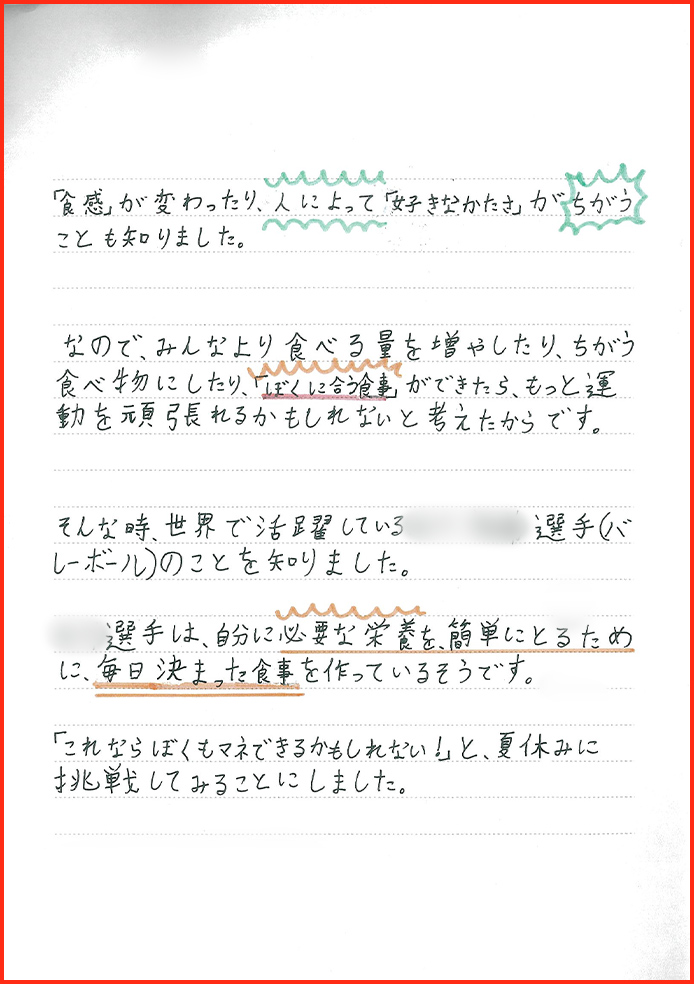 「食感」が変わったり、人によって「好きなかたさ」がちがう
ことも知りました。
なので、みんなより食べる量を増やしたり、ちがう
食べ物にしたり、「ぼくに合う食事」ができたら、もっと運
動を頑張れるかもしれないと考えたからです。
そんな時、世界で活躍している 選手(バ
レーボール)のことを知りました。
選手は、自分に必要な栄養を、簡単にとるため
に、毎日決まった食事を作っているそうです。
「これならぼくもマネできるかもしれない!」と、夏休みに
挑戦してみることにしました。